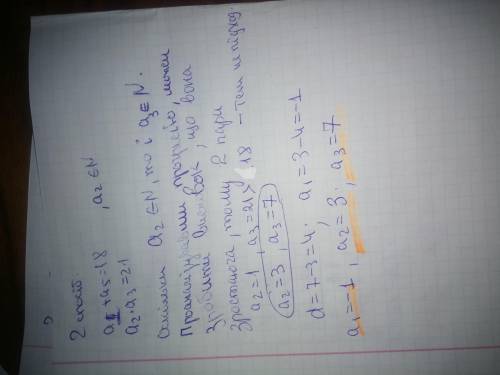 2 спосіб.
a₁ + a₅ = 18 , a₂ ∈ N
a₂ · a₃ = 21
Оскільки a₂ ∈ N, то і a₃ ∈ N.
Проаналізувавши прогресію, можем
зробити висновок, що вона
зростаюча, тому 2 пари
a₂ = 1, a₃ = 21 > 18 - теж не підход.
a₂ = 3, a₃ = 7
d = 7-3 = 4. a₁ = 3-4 = -1
a₁ = -1, a₂ = 3. a₃ = 7